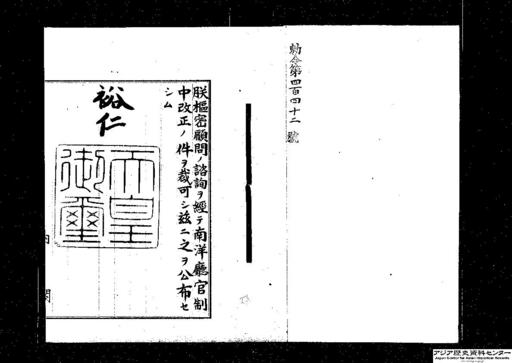 勅令第四百四十二號
朕樞密顧問ノ諮詢ヲ經テ南洋廳官制
中改正ノ件ヲ裁可シ茲ニ之ヲ公布セ
シム
裕仁
天皇
御璽
内
閣
アジア歴史資料センター
Japan Center for Asian Historical Records